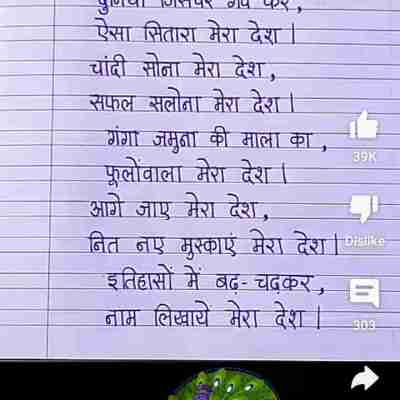 दुनिया जिसपर गर्व करे,
ऐसा सितारा मेरा देश।
चांदी सोना मेरा देश,
सफल सलोना मेरा देश।
गंगा जमुना की माला का,
39K
फूलोंवाला मेरा देश।
आगे जाए मेरा देश,
Dislike
नित नए मुस्काएं मेरा देश।
इतिहासों में बढ़-चढ़कर,
303
नाम लिखायें मेरा देश।